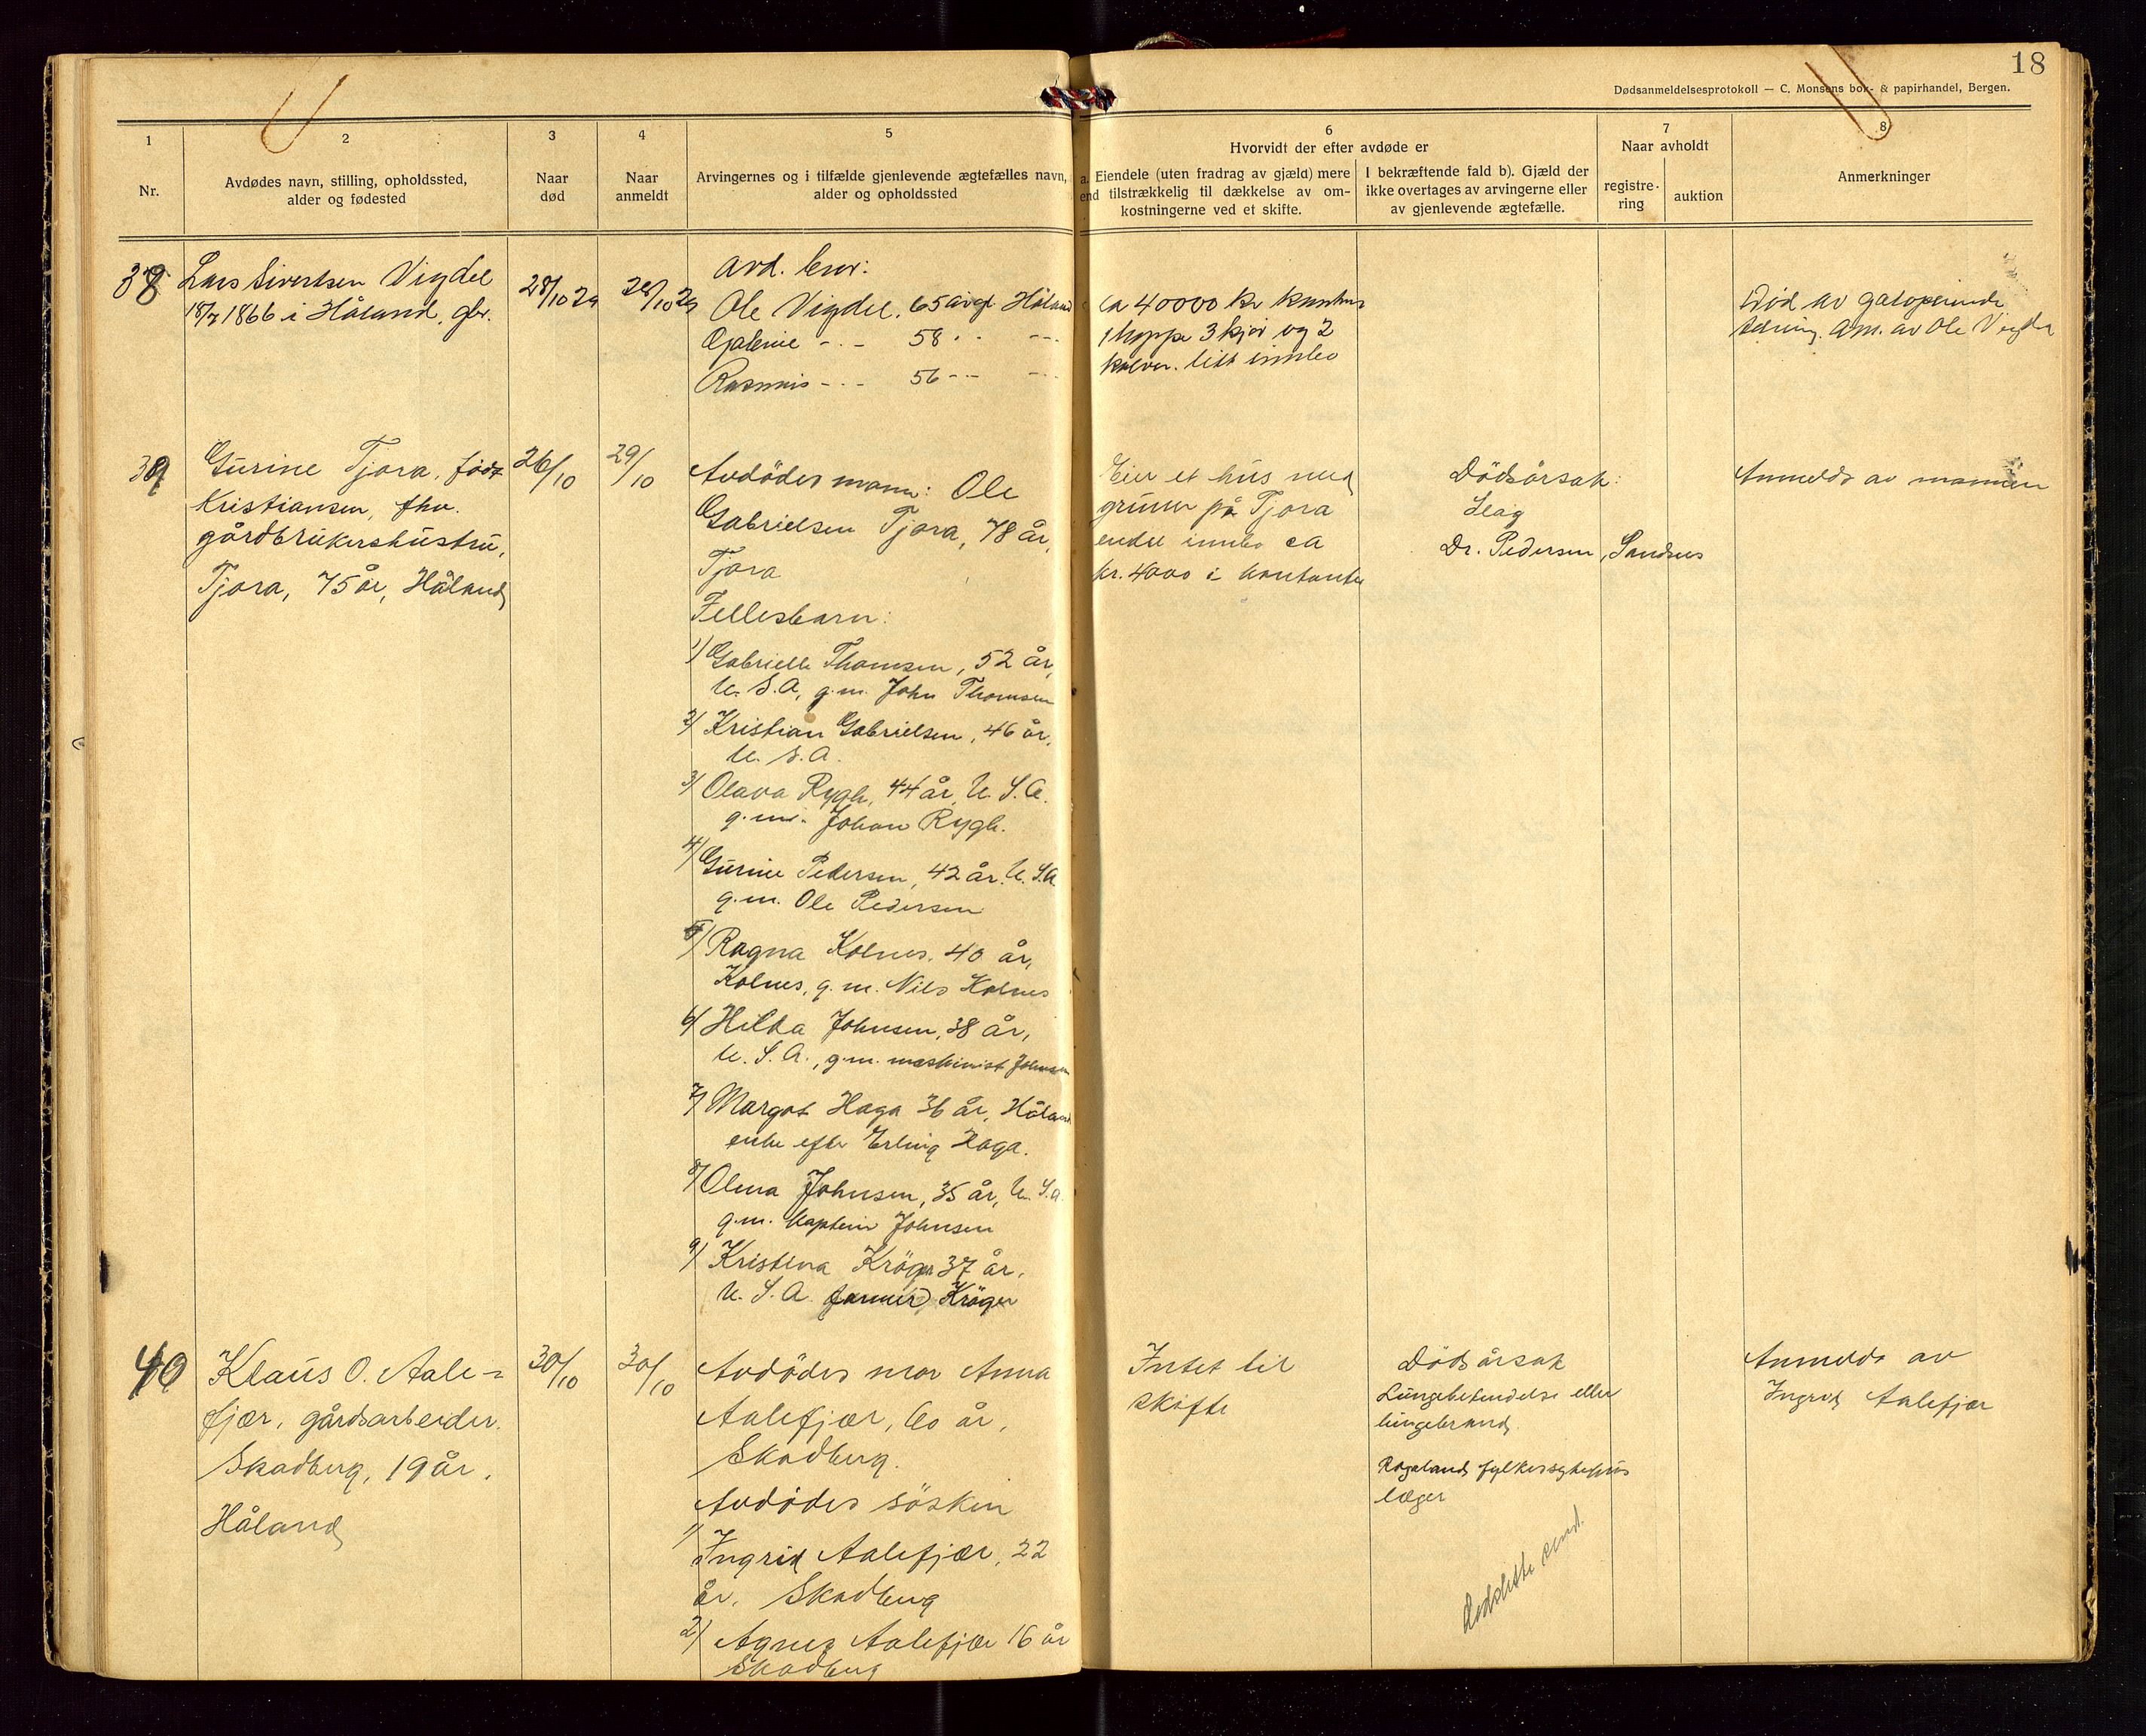 18
Dødsanmeldelsesprotokoll — C. Monsens bok- & papirhandel, Bergen.
1
2
3
4
5
6
7
8
Nr.
Avdødes navn, stilling, opholdssted,
alder og fødested
Naar
død
Naar
anmeldt
Arvingernes og i tilfælde gjenlevende ægtefælles navn,
alder og opholdssted
Hvorvidt der efter avdøde er
a. Eiendele (uten fradrag av gjæld) mere
end tilstrækkelig til dækkelse av om-
kostningerne ved et skifte.
I bekræftende fald b). Gjæld der
ikke overtages av arvingerne eller
av gjenlevende ægtefælle.
Naar avholdt
registre-
ring
auktion
Anmerkninger
38
Lars Sivertsen Vigdel
18/7 1866 i Håland, gbr.
28/10 29
29/10 29
Avd.
Ole Vigdel, 65 år gl. Håland
58
Rasmus - - 56 - -
ca 40000 kr
1 hoppe 3 kjør og 2
kalver. litt innbo
Død av galoperende
tæring. Anm. av Ole Vigdel
39
Gurine Tjora, født
Kristiansen, fhv.
gårdbrukershustru,
Tjora, 75 år, Håland
26/10
29/10
Avdødes mann: Ole
Gabrielsen Tjora, 78 år,
Tjora
Fellesbarn:
1/ Gabrielle Thomsen, 52 år,
U.S.A, g.m. John Thomsen
2/ Kristian Gabrielsen, 46 år,
U.S.A.
3/ Olava Rygh, 44 år, U.S.A.
g.m. Johan Rygh.
4/ Gurine Pedersen, 42 år. U.S.A.
g.m. Ole Pedersen
5/ Ragna Kolnes, 40 år,
Kolnes, g.m. Nils Kolnes
6/ Hilda Johnsen, 38 år,
U.S.A., g.m. maskinist Johnsen
7/ Margot Haga 36 år, Håland
enke efter Erling Haga.
8/ Olena Johnsen, 35 år, U.S.A.
g.m. kaptein Johnsen
9/ Kristina Kröger 37 år,
U.S.A. farmer Kröger
Eier et hus med
grunn på Tjora
endel innbo ca
kr. 4000 i kontanter
Dödsårsak:
Slag
Dr. Pedersen, Sandnes
Anmeldt av mannen
40
Klaus O. Aale=
fjær, gårdsarbeider.
Skadberg, 19 år,
Håland
30/10
30/10
Avdödes mor Anna
Aalefjær, 60 år,
Skadberg.
Avdödes sösken
1/ Ingrid Aalefjær, 22
år, Skadberg
2/ Agnes Aalefjær 16 år
Skadberg
Intet til
skifte
Dödsårsak
Lungebetendelse eller
lungebrand,
Rogaland fylkessykehus
læger
Anmeldt av
Ingrid Aalefjær